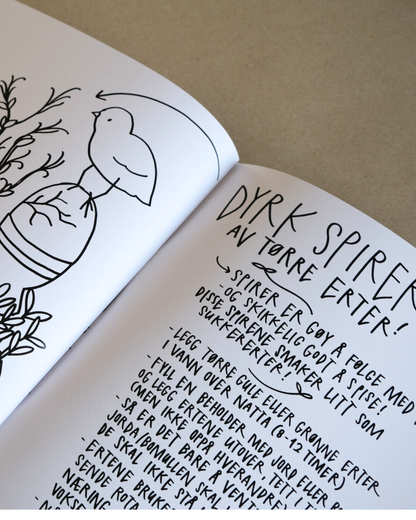 DYRK SPIRER
AV TØRRE ERTER!
SPIRER ER GØY Å FØLGE MED
-OG SKIKKELIG GODT Å SPISE!
DISSE SPIRENE SMAKER LITT SOM
SUKKERERTER!
-LEGG TØRRE GULE ELLER GRØNNE ERTER
I VANN OVER NATTA (6-12 TIMER)
-FYLL EN BEHOLDER MED JORD ELLER
OG LEGG ERTENE UTOVER TETT I TETT
(MEN IKKE OPPÅ HVERANDRE)
-SÅ ER DET BARE Å VENTE
JORDA/BOMULLEN SKAL
DE SKAL IKKE STÅ
-ERTENE BRUKER
SENDE ROTA
NÆRING
VOKSE